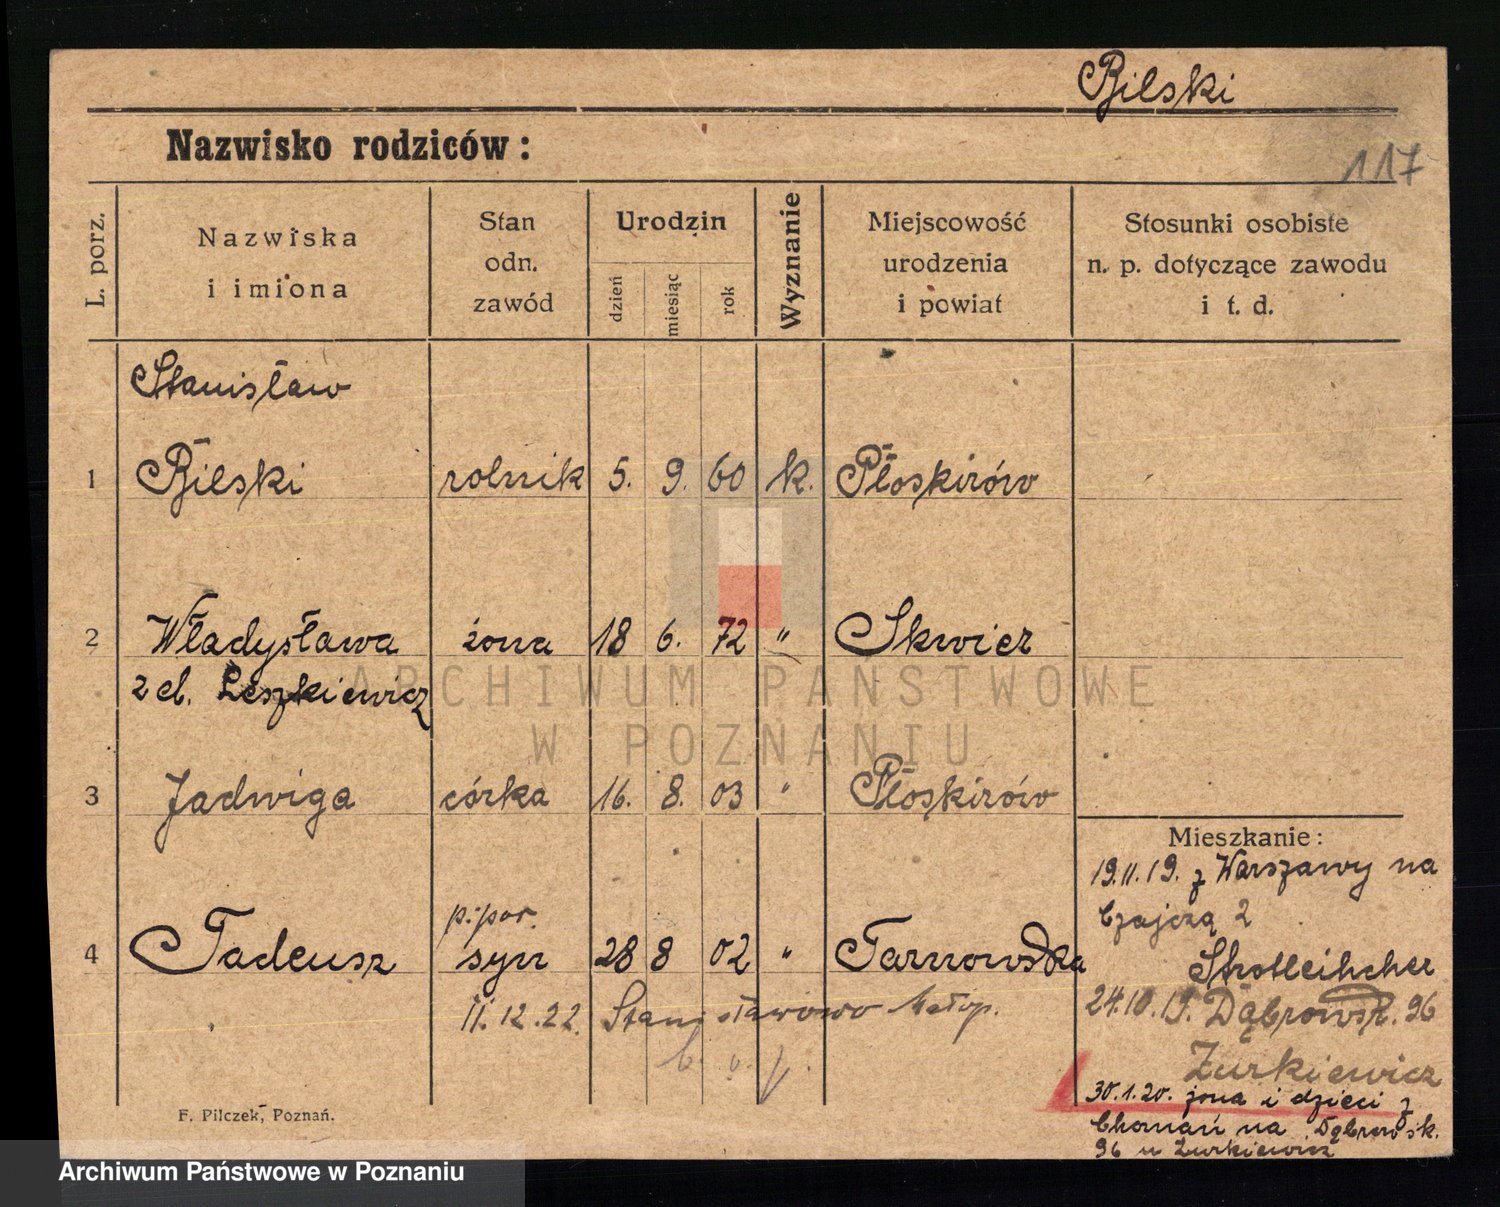 Bilski
Nazwisko rodziców:
117
L. porz.
Nazwiska
i imiona
Stan
odn.
zawód
Urodzin
dzień
miesiąc
rok
Wyznanie
Miejscowość
urodzenia
i powiat
Stosunki osobiste
n. p. dotyczące zawodu
i t. d.
Stanisław
1 Bilski rolnik 5. 9. 60 k. Płoskirów
2 Władysława żona 18 6. 72 " Skwier
z d. Leszkiewicz
3 Jadwiga córka 16. 8. 03 " Płoskirów
p.por.
4 Tadeusz syn 28 8 02 " Tarnowska
11.12.22. Stanisławowo Małop.
Mieszkanie:
19.11.19. z Warszawy na
Czajczą 2
24.10.19. Dąbrowsk. 96
Żurkiewicz
30.1.20. żona i dzieci z
na Dąbrowsk.
96 u Żurkiewicz
F. Pilczek, Poznań.
ARCHIWUM PAŃSTWOWE
W POZNANIU
Archiwum Państwowe w Poznaniu